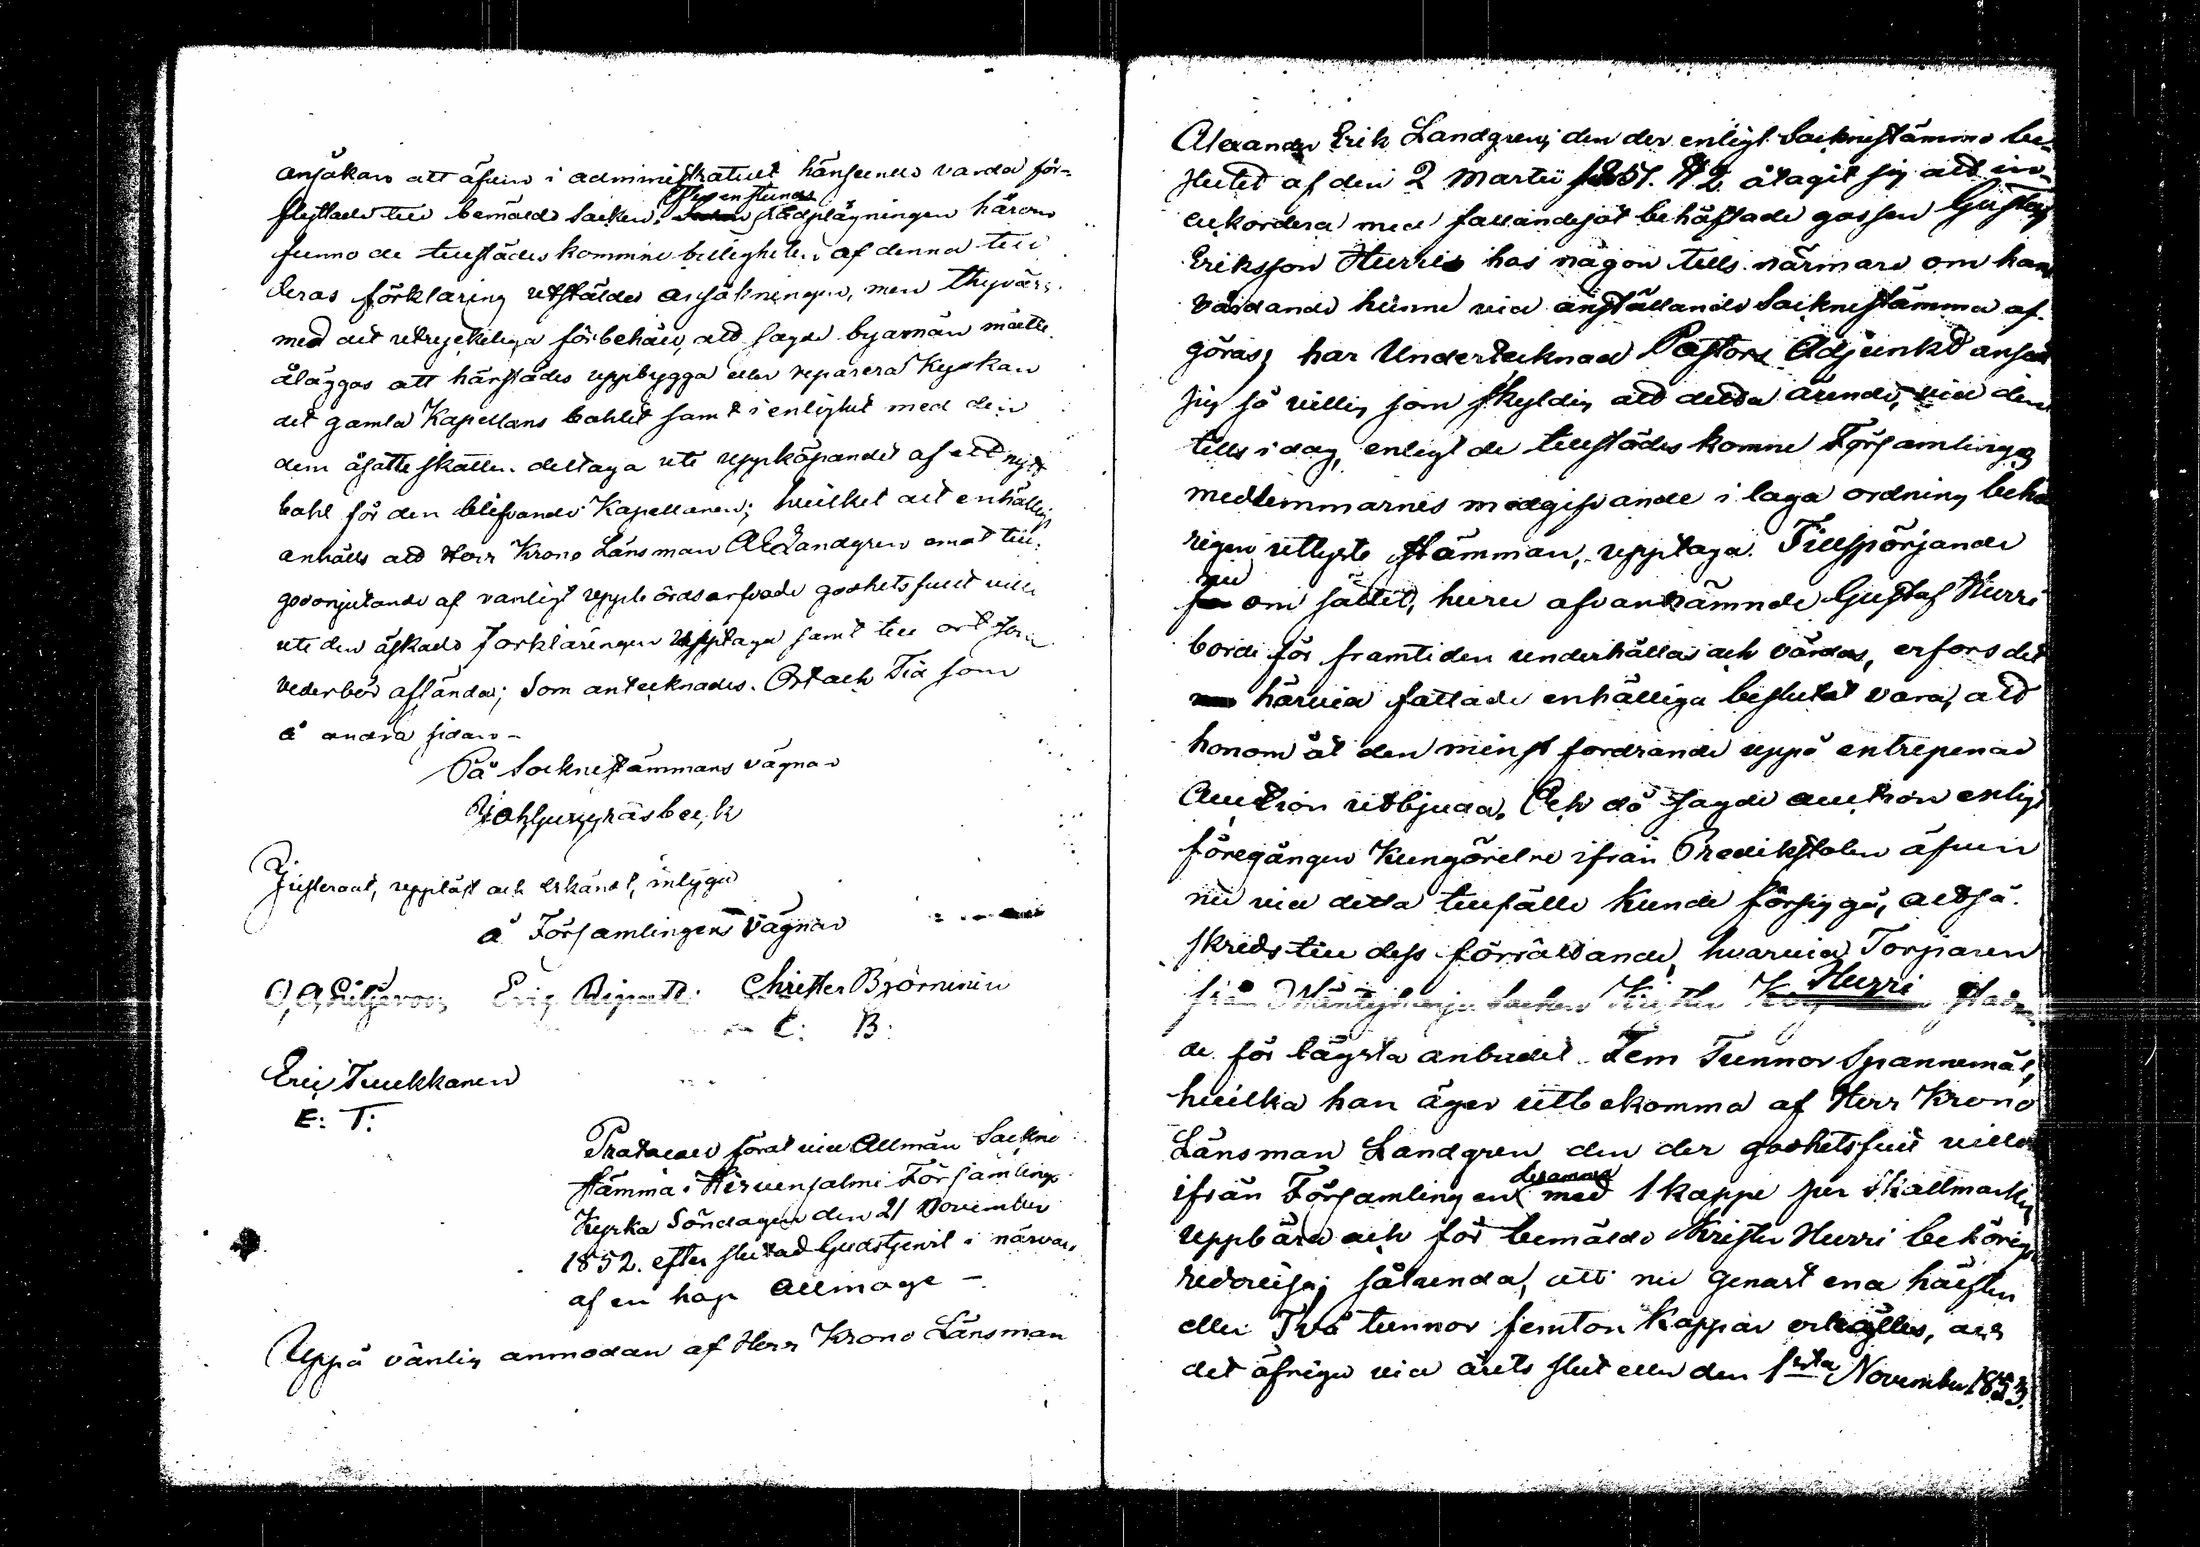 ansökan att äfven i administratift hänseende varda för-
flyttade till bemälde Socken. Efter en stunds
rådplägningen härom
funno de tillstädeskommne billigheten af denna till
deras förklaring utstälde ansökningen, men
med det utryckeliga förbehåll, att sagde byamän måtte
åläggas att härstädes uppbygga eller reparera Kyrkan
det gamla Kapellans bohlet samt i enlighet med den
dem åsatte skatten deltaga uti uppköpandet af ett nytt
bohl för den blifvande Kapellanen; hvilket allt enhälligt
anhålls att Herr Krono Länsman A E Landgren emot till-
godonjutande af vanligt uppbördsarfvode godhetsfullt ville
uti den äskade förklaringen upptaga samt till ort som
vederbör afsända; Som antecknades. Ort och Tid som
å andra sidan -
På Socknestämmans vägnar
Justerat, uppläst och erkändt, intyga
å Församlingens vägnar
Christer Björninen
C: B:
Eric Tuukkanen
E: T:
Protocoll fördt vid Allmän Sockne
stämma i Hirvensalmi Församlings
Kyrka Söndagen den 21 November
1852 efter slutad Gudstjenst i närvaro
af en hop Allmoge -
Uppå vänlig anmodan af Herr Krono Länsman
Alexander Erik Landgren, den der enligt Socknestämmo be-
slutet af den 2 Martii 1851. § 2 åtagit sig att in-
ackordera med fallandesot behäftade gossen Gustaf
Eriksson Hurri hos någon tills närmare om hans
vårdande hunne vid anställande Socknestämma af-
göras; har Undertecknad Pastors Adjunkt ansett
sig så villig som skyldig att detta ärende, vid den
tills i dag, enligt de tillstädeskomne Församlings
medlemmarnes medgifvande i laga ordning behö
rigen utlyste stämman, upptaga. Tillspörjande
nu
om sättet, huru ofvannämnde Gustaf Hurri
borde för framtiden underhållas och vårdas, erfors det
härvid fattade enhälliga beslutet vara, att
honom åt den minst fordrande uppå entrepenad
Auction utbjuda. Och då sagde auction enligt
föregången Kungörelse ifrån Predikstolen äfven
nu vid detta tillfälle kunde försiggå, altså
skreds till dess förrättande, hvarvid Torparen
från Mäntyharju Socken Krister Hurri stadna-
de för lägsta anbudet Fem Tunnor Spannemål,
hvilka han äger utbekomma af Herr Krono
Länsman Landgren den der godhetsfullt ville
ifrån Församlingen desamma
med 1 kappe per Skattmark
uppbära och för bemälde Krister Hurri behörigen
redovisa; sålunda, att nu genast ena hälften
eller Två tunnor femton Kappar erhålles, och
det öfriga vid årets slut eller den 1sta November 1853.